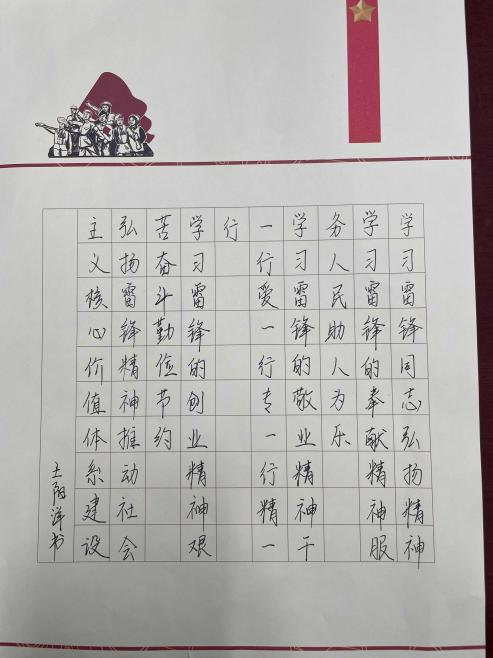 学习雷锋同志弘扬精神
学习雷锋的奉献精神服
务人民助人为乐
学习雷锋的敬业精神干
一行爱一行专一行精一
行
学习雷锋的创业精神艰
苦奋斗勤俭节约
弘扬雷锋精神推动社会
主义核心价值体系建设
王阳洋书